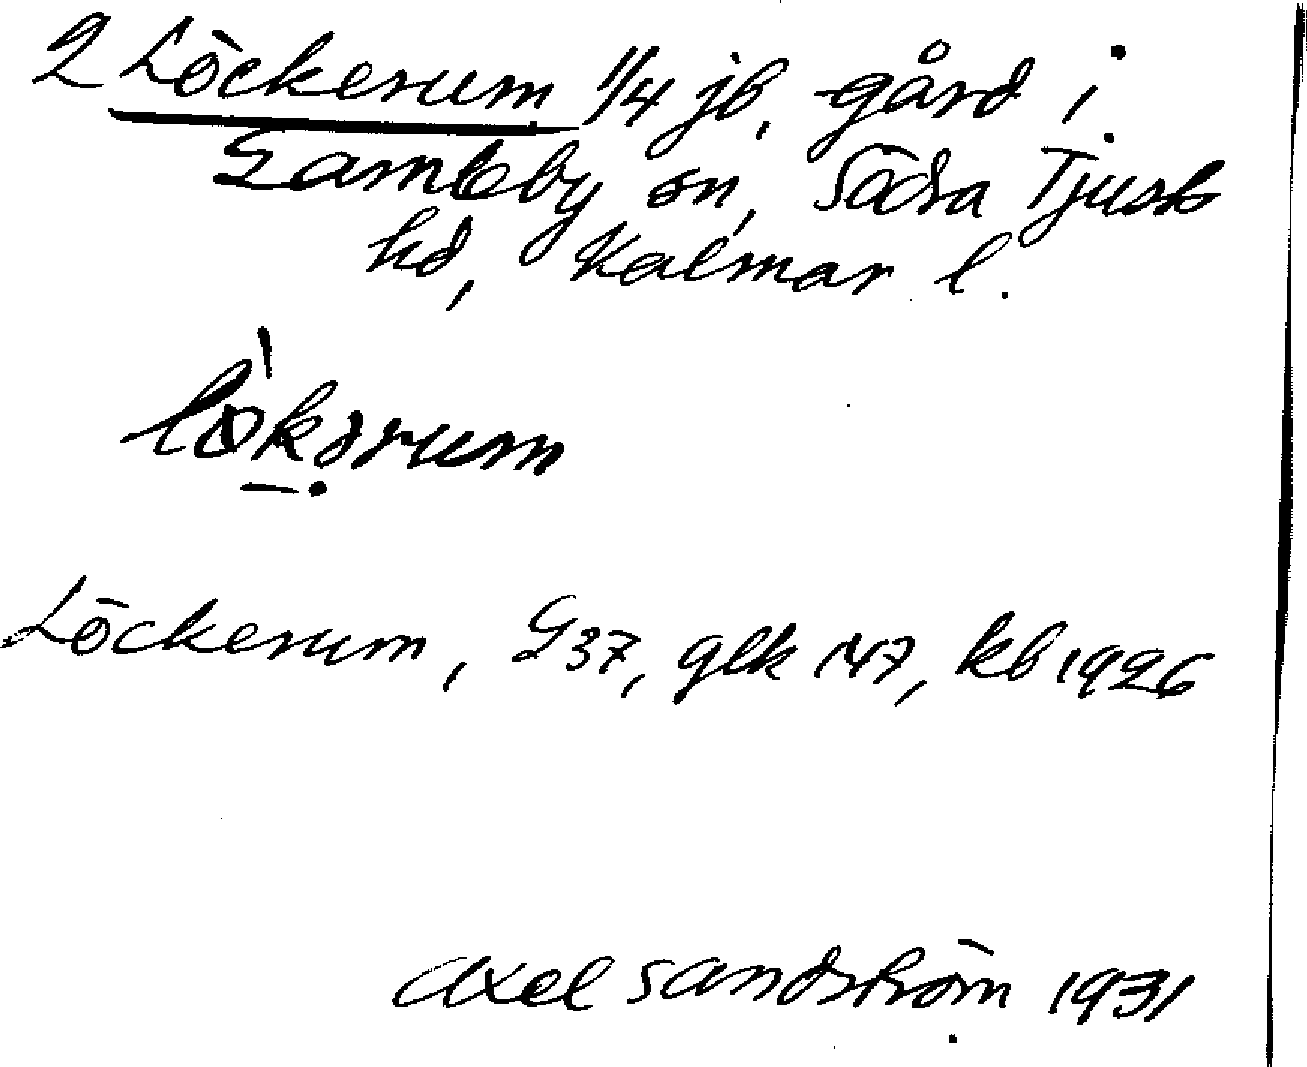 2 Löckerum 1/4 jb, gård i
Gamleby sn, Södra Tjust
hd, Kalmar l.
lökərum
Löckerum, G37, glk 147, kb 1926
Axel Sandström 1931